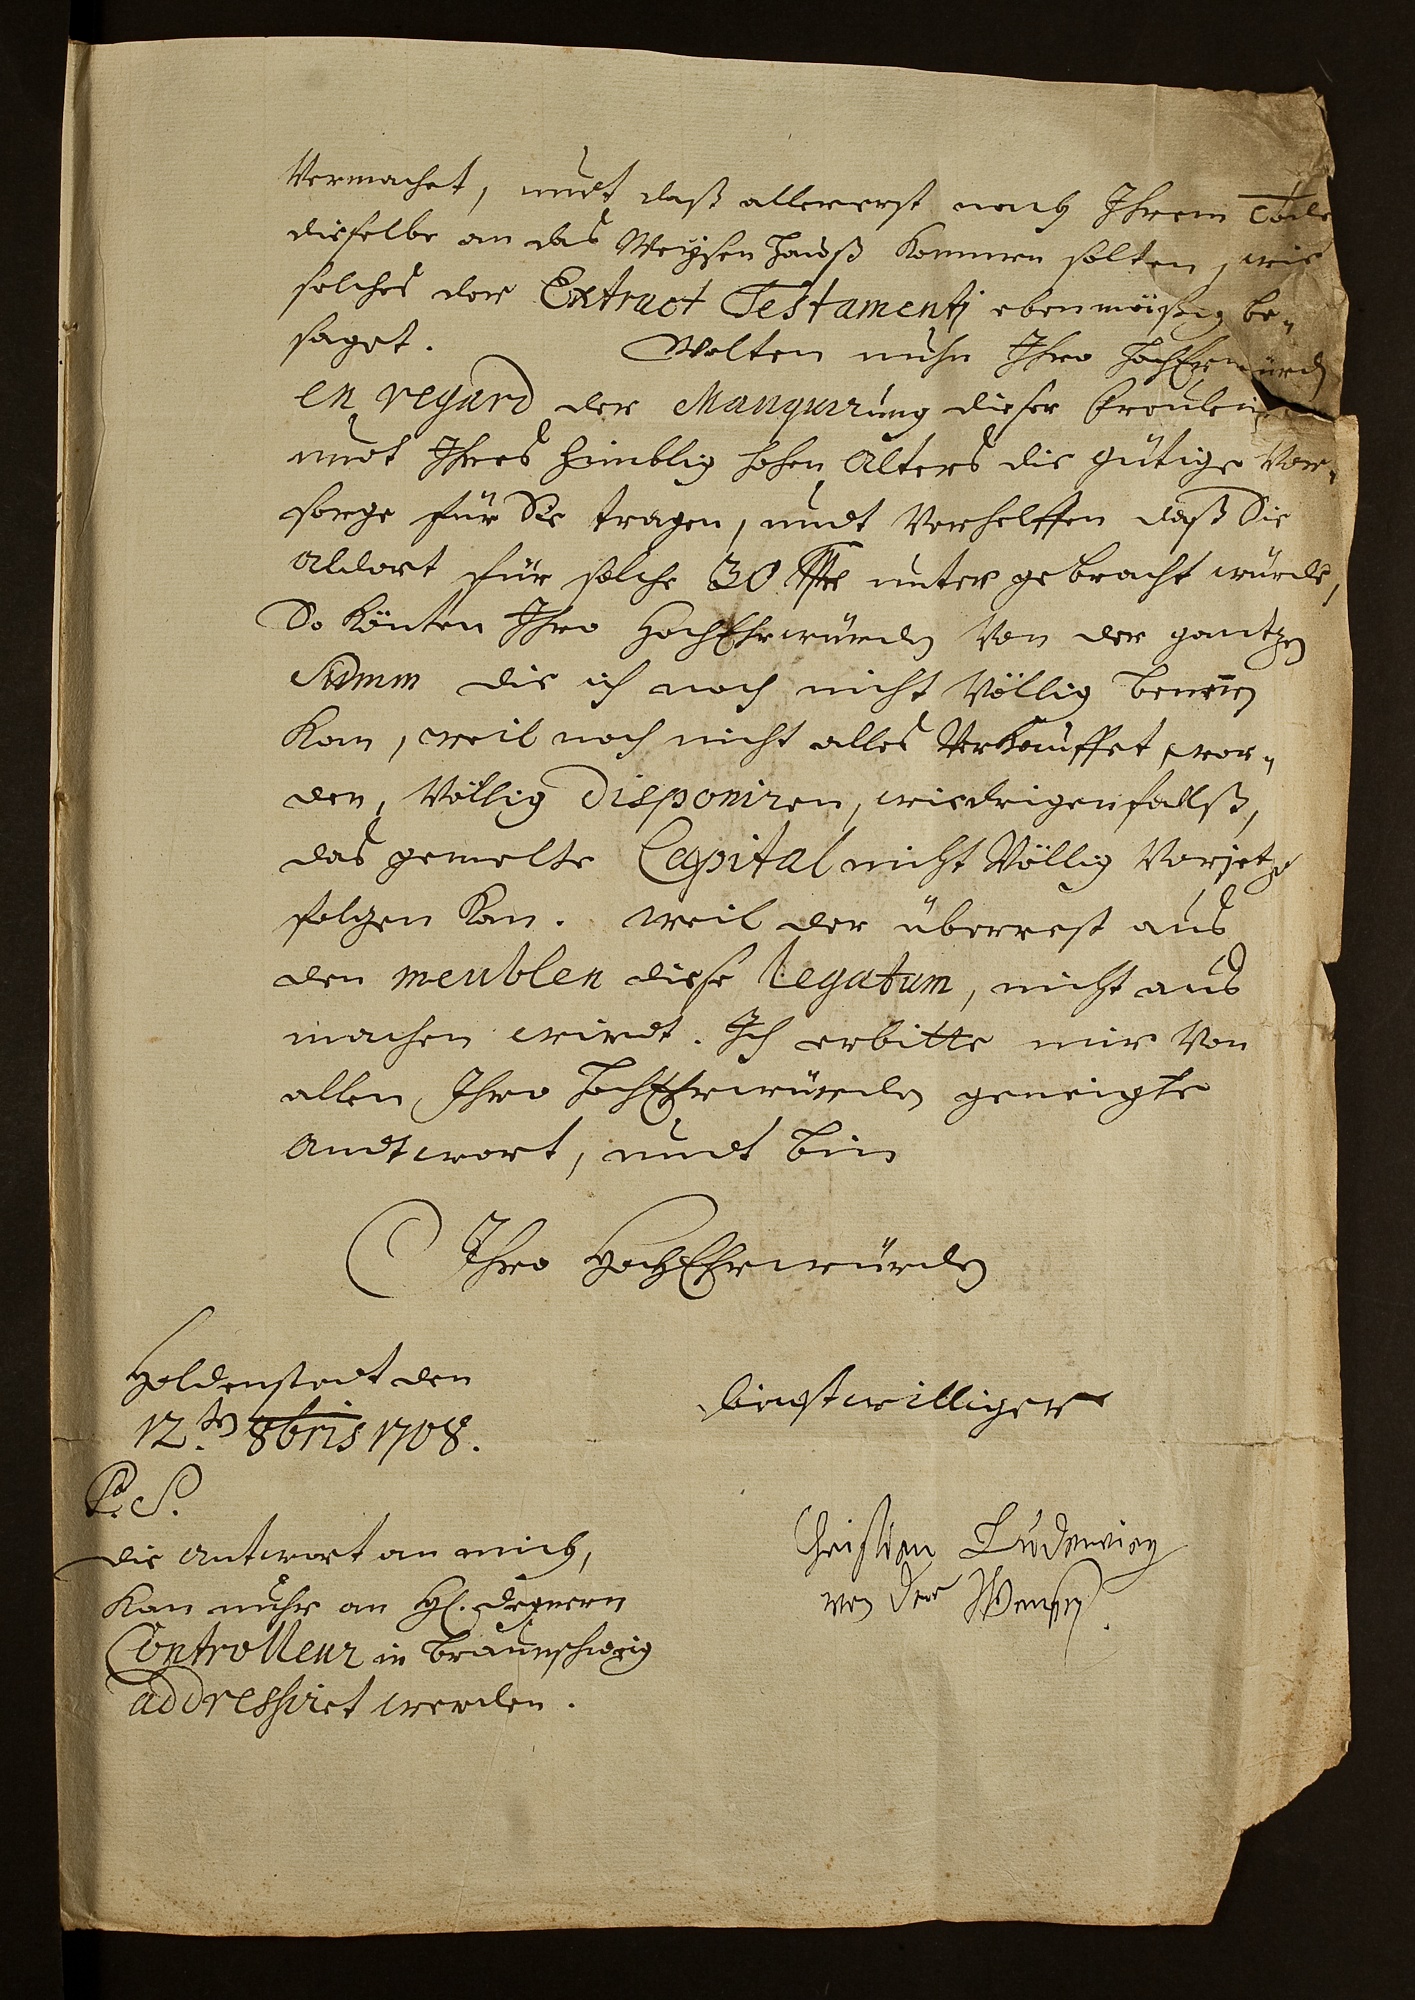 Vermachet, undt daß allererst nach Ihrem Tode
dieselbe an das Weysen Hauß kommen solten, wie
solches der Extract Testamenti ebenmäßig be-
saget. Wolten nuhn Ihro HochEhrwürd
en regard der Manquirung dieser Freulein
undt Ihres zimblig hohen Alters die gütige Vor-
sorge für Sie tragen, undt Verhelffen daß Sie
aldort für solche 30 unter gebracht würde,
So könten Ihro HochEhrwürden Von der gantzen
Summ die ich noch nicht Völlig benennen
kan, weil noch nicht alles Verkauffet wor-
den, Völlig disponiren, wiedrigenfallß,
das gemelte Capital nicht Völlig Vorjetzo
folgen kan. weil der überrest aus
den meublen diese legatum, nicht aus
machen wirdt. Ich erbitte mir Von
allen Ihro HochEhrwürden geneigte
Andtwort, undt bin
Ihro HochEhrwürden
Holdenstedt den
12.ten 8bris 1708.
dinstwilliger
P. S.
die antwort an mich,
kan nuhr an H.
Controlleur in Braunschweig
addressiret werden.
Christian Ludewieg
von der Wensen.